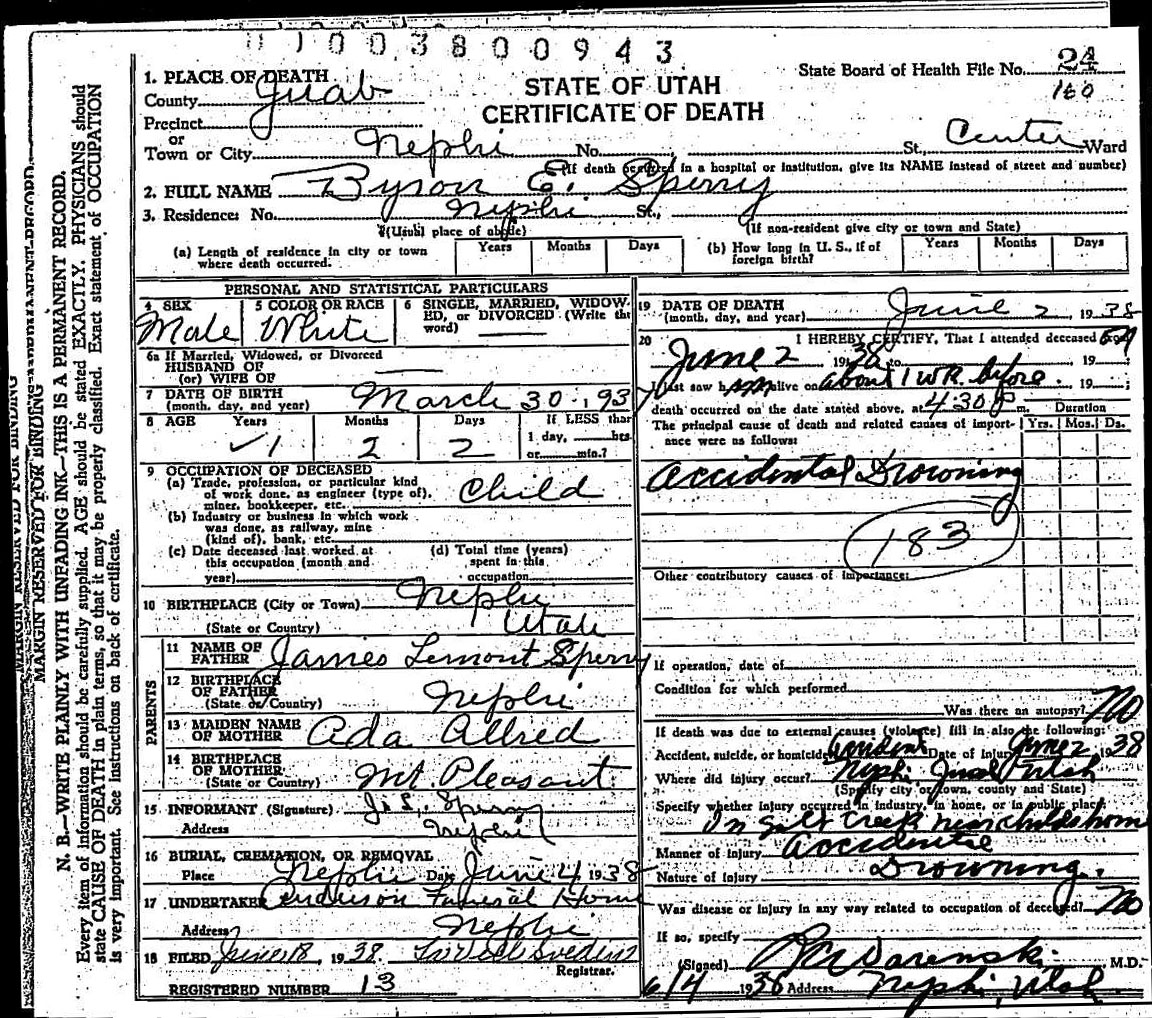 0 1 0 0 3 8 0 0 9 4 3
1. PLACE OF DEATH
County Juab
Precinct
or
Town or City Nephi No. St., Center Ward
STATE OF UTAH
CERTIFICATE OF DEATH
State Board of Health File No. 24
160
(If death occurred in a hospital or institution, give its NAME instead of street and number)
2. FULL NAME Byron E. Sperry
3. Residence: No. Nephi St.,
(Usual place of abode) (If non-resident give city or town and State)
(a) Length of residence in city or town where death occurred. Years Months Days
(b) How long in U. S., if of foreign birth? Years Months Days
PERSONAL AND STATISTICAL PARTICULARS
4 SEX Male
5 COLOR OR RACE White
6 SINGLE, MARRIED, WIDOWED, or DIVORCED (Write the word)
6a If Married, Widowed, or Divorced
HUSBAND OF
(or) WIFE OF
7 DATE OF BIRTH
(month, day, and year) March 30, 193
8 AGE Years 1 Months 2 Days 2
If LESS than
1 day, hrs
or min.?
9 OCCUPATION OF DECEASED
(a) Trade, profession, or particular kind
of work done, as engineer (type of),
miner, bookkeeper, etc. Child
(b) Industry or business in which work
was done, as railway, mine
(kind of), bank, etc.
(c) Date deceased last worked at
this occupation (month and
year)
(d) Total time (years)
spent in this
occupation
10 BIRTHPLACE (City or Town) Nephi
(State or Country) Utah
PARENTS
11 NAME OF
FATHER James Lemont Sperry
12 BIRTHPLACE
OF FATHER
(State or Country) Nephi
13 MAIDEN NAME
OF MOTHER Ada Allred
14 BIRTHPLACE
OF MOTHER
(State or Country) Mt. Pleasant
15 INFORMANT (Signature) Sperry
Address Nephi
16 BURIAL, CREMATION, OR REMOVAL
Place Nephi Date June 4, 1938
17 UNDERTAKER Anderson Funeral Home
Address Nephi
18 FILED June 18, 1938
Registrar.
REGISTERED NUMBER 13
19 DATE OF DEATH
(month, day, and year) June 2, 1938
20 I HEREBY CERTIFY, That I attended deceased
June 2 1938 to 19 ;
I last saw him alive on about 1 wk. before. 19 ;
death occurred on the date stated above, at 4:30 p m.
Duration
Yrs. Mos. Ds.
The principal cause of death and related causes of importance were as follows:
Accidental Drowning
183
Other contributory causes of importance:
If operation, date of
Condition for which performed
Was there an autopsy? No
If death was due to external causes (violence) fill in also the following:
Accident, suicide, or homicide accident Date of Injury June 2 1938
Where did injury occur? Nephi Juab Utah
(Specify city or town, county and State)
Specify whether injury occurred in industry, in home, or in public place
In Salt Creek near childs home
Manner of Injury Accidental
Nature of Injury Drowning.
Was disease or injury in any way related to occupation of deceased? No
If so, specify
(Signed) M.D.
6/4 1938 Address Nephi, Utah
MARGIN RESERVED FOR BINDING
MARGIN RESERVED FOR BINDING
N. B.—WRITE PLAINLY WITH UNFADING INK—THIS IS A PERMANENT RECORD.
Every item of information should be carefully supplied. AGE should be stated EXACTLY. PHYSICIANS should
state CAUSE OF DEATH in plain terms, so that it may be properly classified. Exact statement of OCCUPATION
is very important. See instructions on back of certificate.